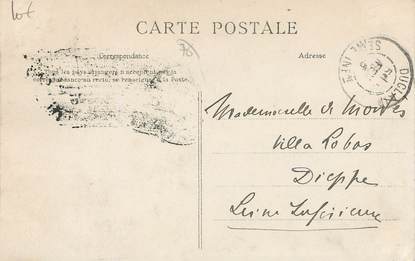 lot
CARTE POSTALE
Correspondance
70
Adresse
les pays étrangers n'acceptent pas la
correspondance au recto, se renseigner à la Poste.)
DUCLAIR
SEINE INFRE
Mademoiselle de
Villa Lobos
Dieppe
Seine Inférieure